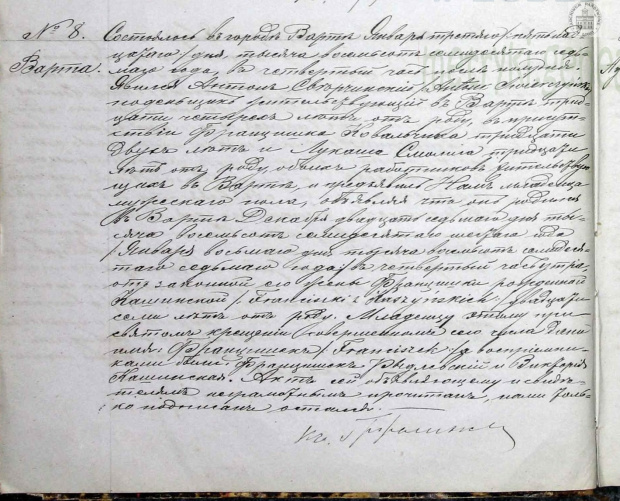 № 8.
Варта.
Состоялось въ городѣ Вартѣ Января третьяго /пятнад
цатаго/ дня, тысяча восемьсотъ семидесятаго седь
маго года, въ четвертый часъ пополудни.
Явился Антонъ Antoni
поденьщикъ жительствующiй въ Вартѣ трид
цати четырехъ лѣтъ отъ роду, въ присут
ствiи Францишка Ковальчика тридцати
двухъ лѣтъ и Лукаша тридцати
лѣтъ отъ роду, обоихъ работниковъ жительствую
щихъ въ Вартѣ, и предъявилъ Намъ младенца
мужескаго пола, объявляя что онъ родился
въ Вартѣ Декабря двадцать седьмаго дня ты
сяча восемьсотъ семидесятаго шестаго года
/Января восьмаго дня тысяча восемьсотъ семидеся
таго седьмаго года/ въ четвертый часъ утра
отъ законной его жены Францишки урожденной
Кашинской / Franciszki z двадцати
семи лѣтъ отъ роду. Младенцу этому при
святомъ крещенiи совершенномъ сего числа дано
имя: Францишекъ / Franciszek :/ а воспрiемни
ками были: Францишекъ и Викторiя
Кашинская. Актъ сей объявляющему и свидѣ
телямъ неграмотнымъ прочитанъ, нами толь
ко подписанъ остался.